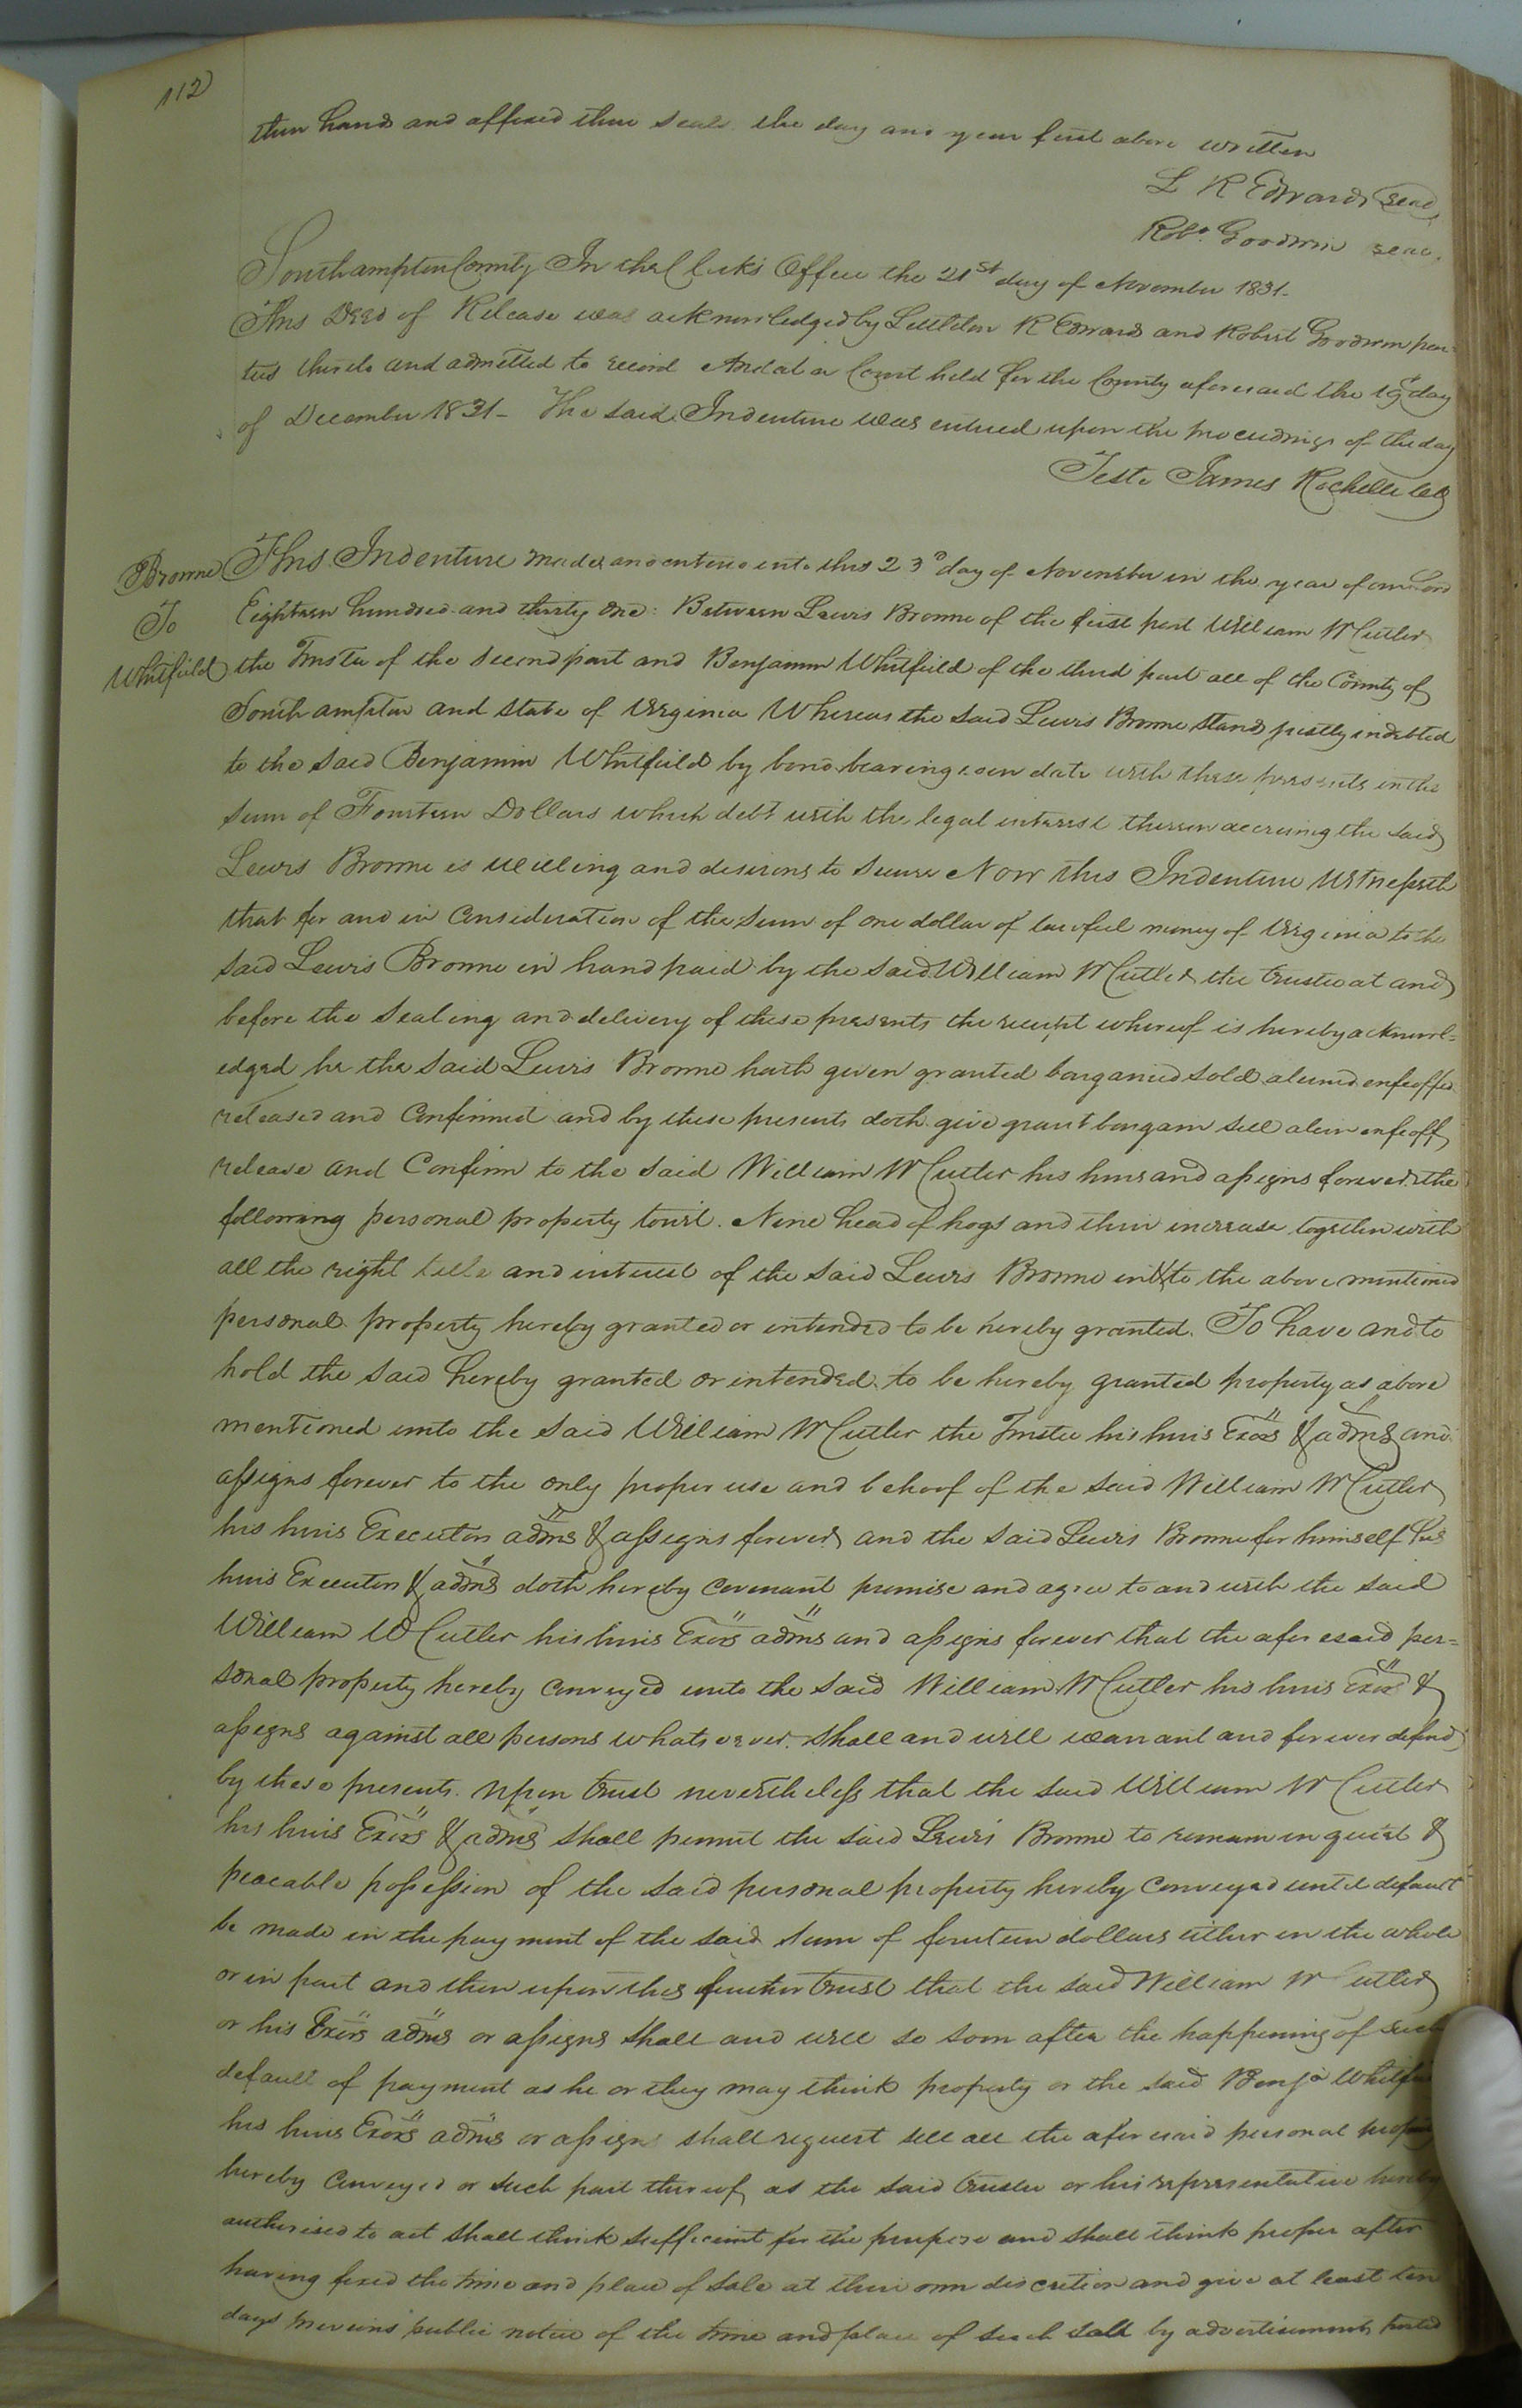 112
their hands and affixed their seals the day and year first above written
L R Edwards seal
Rob.t Goodwin seal
Southampton County In the Clerks Office the 21st day of November 1831-
This Deed of Release was acknowledged by Littleton R Edwards and Robert Goodwin par=
ties thereto and admitted to record And at a Court held for the County aforesaid the 19th day
of December 1831- The said Indenture was entered upon the proceedings of the day
Teste James Rochelle
Browne To Whitfield
This Indenture made and entered into this 23d day of November in the year of our Lord
Eighteen hundred and thirty one: Between Lewis Browne of the first part William W Cutler
the Trustee of the second part and Benjamin Whitfield of the third part all of the County of
Southampton and State of Virginia Whereas the said Lewis Browne stands justly indebted
to the said Benjamin Whitfield by bond bearing even date with these presents in the
sum of Fourteen Dollars which debt with the legal interest thereon accruing the said
Lewis Browne is willing and desirous to secure Now this Indenture Witnesseth
that for and in Consideration of the sum of one dollar of lawful money of Virginia to the
said Lewis Browne in hand paid by the said William W Cutler the trustee at and
before the sealing and delivery of these presents the receipt whereof is hereby acknowl=
edged he the said Lewis Browne hath given granted bargained sold aliened enfeoffed
released and Confirmed and by these presents doth give grant bargain sell alien enfeoff
release and Confirm to the said William W Cutler his heirs and assigns forever the
following personal property towit. Nine head of hogs and their increase together with
all the right title and interest of the said Lewis Browne in & to the above mentioned
personal property hereby granted or intended to be hereby granted. To have and to
hold the said hereby granted or intended to be hereby granted property as above
mentioned unto the said William W Cutler the Trustee his heirs Exors & adms and
assigns forever to the only proper use and behoof of the said William W Cutler
his heirs Executors adms & assigns forever and the said Lewis Browne for himself his
heirs Executors & adms doth hereby Covenant promise and agree to and with the said
William W Cutler his heirs Exors adms and assigns forever that the aforesaid per=
sonal property hereby Conveyed unto the said William W Cutler his heirs Exors &
assigns against all persons whatsoever shall and will warrant and forever defend
by these presents. Upon trust nevertheless that the said William W Cutler
his heirs Exors & adms shall permit the said Lewis Browne to remain in quiet &
peacable possession of the said personal property hereby Conveyed until default
be made in the payment of the said sum of fourteen dollars either in the whole
or in part and then upon this further trust that the said William W Cutler
or his Exors adms or assigns shall and will so soon after the happening of such
default of payment as he or they may think property or the said Benja Whitfield
his heirs Exors adms or assigns shall request sell all the aforesaid personal property
hereby Conveyed or such part thereof as the said trustee or his representative hereby
authorised to act shall think sufficient for the purpose and shall think proper after
having fixed the time and place of sale at their own discretion and give at least ten
days previous public notice of the time and place of such sale by advertisements posted